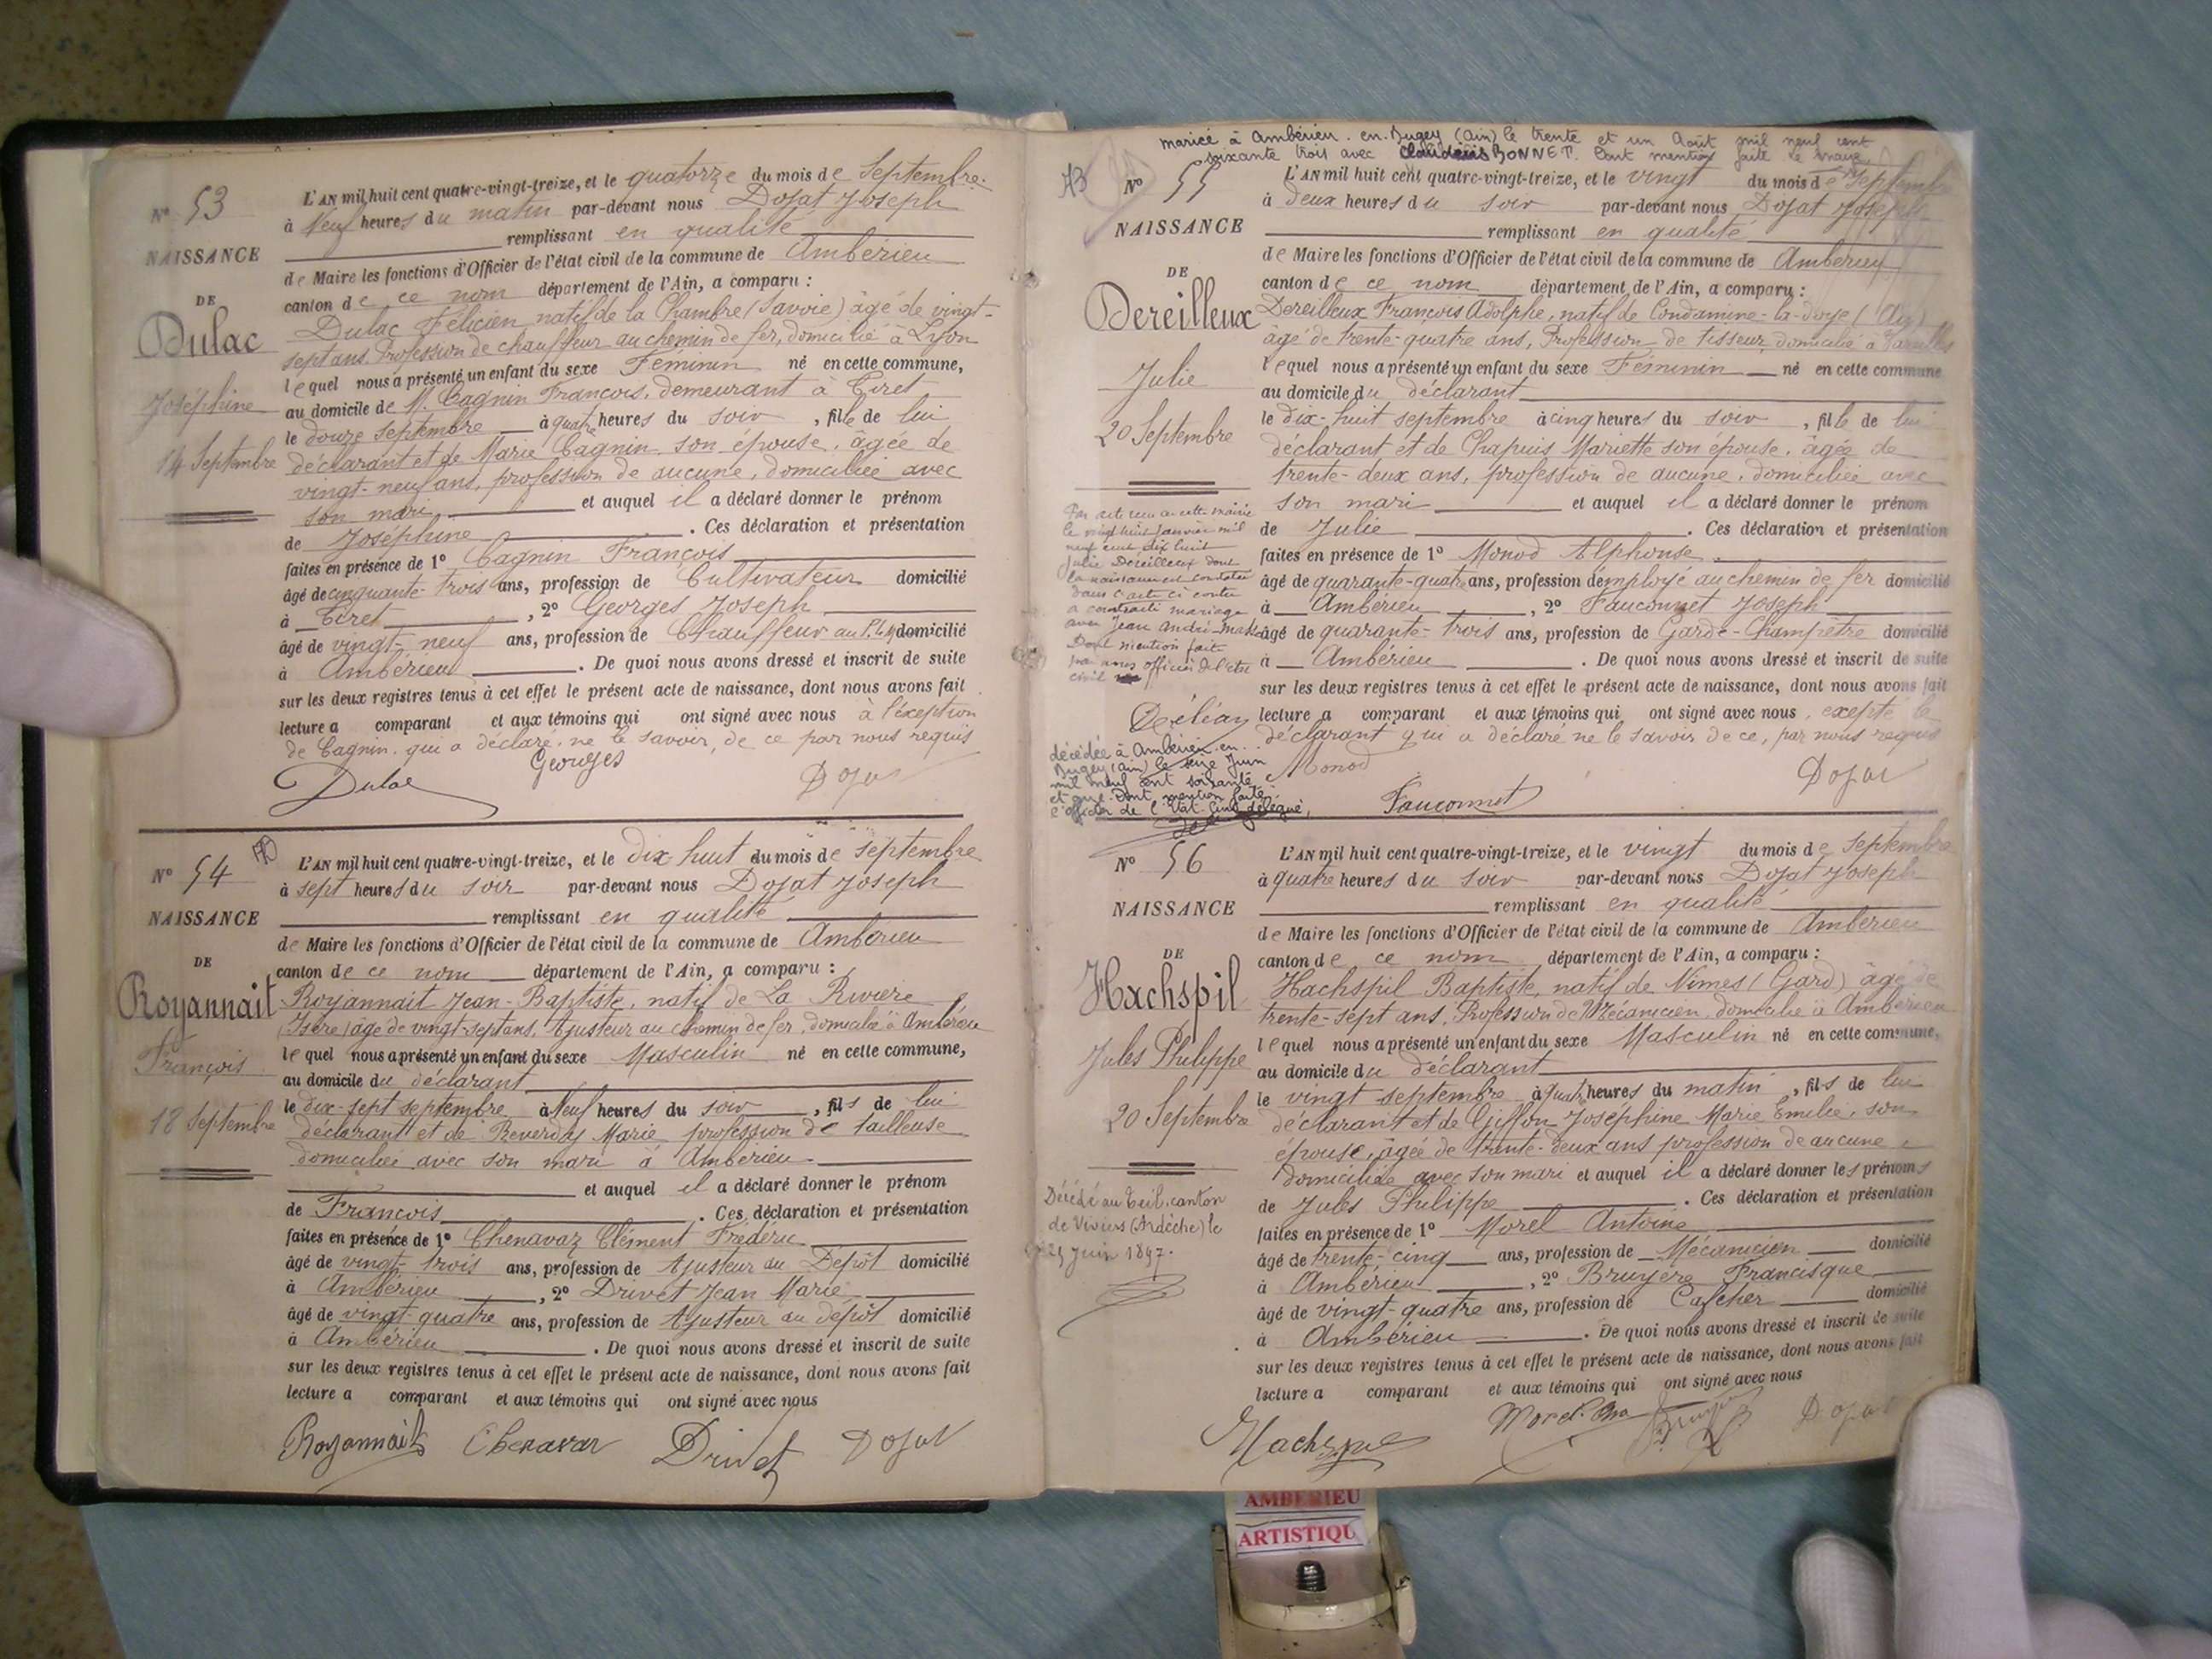 Nº 53
NAISSANCE
DE
Dulac
Joséphine
14 Septembre
L'AN mil huit cent quatre-vingt-treize, et le quatorze du mois de Septembre
à Neuf heures du matin par-devant nous Dojat Joseph
remplissant en qualité
de Maire les fonctions d'Officier de l'état civil de la commune de Ambérieu
canton de ce nom département de l'Ain, a comparu :
Dulac Félicien natif de la Chambre (Savoie) âgé de vingt-
sept ans, Profession de chauffeur au chemin de fer, domicilié à Lyon
lequel nous a présenté un enfant du sexe Féminin né en cette commune,
au domicile de M. Cagnin François, demeurant à Tiret
le douze septembre à quatre heures du soir, fille de lui
déclarant et de Marie Cagnin son épouse, âgée de
vingt-neuf ans, profession de aucune, domiciliée avec
son mari et auquel il a déclaré donner le prénom
de Joséphine. Ces déclaration et présentation
faites en présence de 1º Cagnin François
âgé de cinquante-trois ans, profession de Cultivateur domicilié
à Tiret, 2º Georges Joseph
âgé de vingt-neuf ans, profession de Chauffeur au P.L.M. domicilié
à Ambérieu. De quoi nous avons dressé et inscrit de suite
sur les deux registres tenus à cet effet le présent acte de naissance, dont nous avons fait
lecture a comparant et aux témoins qui ont signé avec nous à l'exeption
de Cagnin, qui a déclaré ne le savoir, de ce par nous requis
Dulac Georges Dojat
Nº 54
NAISSANCE
DE
Royannait
François
18 Septembre
L'AN mil huit cent quatre-vingt-treize, et le dix-huit du mois de Septembre
à sept heures du soir par-devant nous Dojat Joseph
remplissant en qualité
de Maire les fonctions d'Officier de l'état civil de la commune de Ambérieu
canton de ce nom département de l'Ain, a comparu :
Royannait Jean-Baptiste, natif de La Rivière
(Isère) âgé de vingt-sept ans, Ajusteur au chemin de fer, domicilié à Ambérieu
lequel nous a présenté un enfant du sexe Masculin né en cette commune,
au domicile du déclarant
le dix-sept septembre à Neuf heures du soir, fils de lui
déclarant et de Reverday Marie profession de tailleuse
domiciliée avec son mari à Ambérieu
et auquel il a déclaré donner le prénom
de François. Ces déclaration et présentation
faites en présence de 1º Chenavaz Clément Frédéric
âgé de vingt-trois ans, profession de Ajusteur au Dépôt domicilié
à Ambérieu, 2º Drivet Jean Marie
âgé de vingt-quatre ans, profession de Ajusteur au dépôt domicilié
à Ambérieu. De quoi nous avons dressé et inscrit de suite
sur les deux registres tenus à cet effet le présent acte de naissance, dont nous avons fait
lecture a comparant et aux témoins qui ont signé avec nous
Royannait Chenavaz Drivet Dojat
mariée à Ambérieu-en-Bugey (Ain) le trente et un Août mil neuf cent
soixante trois avec Claudius BONNET. Dont mention faite le
Nº 55
NAISSANCE
DE
Dereilleux
Julie
20 Septembre
Par acte reçu à cette mairie
le vingt huit Janvier mil
neuf cent dix huit
Julie Dereilleux dont
la naissance est constatée
dans l'acte ci contre
a contracté mariage
avec Jean André
Dont mention fait
par nous officier de l'état
civil
décédée à Ambérieu-en-
Bugey (Ain) le seize Juin
mil neuf cent soixante
et onze. Dont mention faite
l'officier de l'Etat Civil délégué,
L'AN mil huit cent quatre-vingt-treize, et le vingt du mois de Septembre
à deux heures du soir par-devant nous Dojat Joseph
remplissant en qualité
de Maire les fonctions d'Officier de l'état civil de la commune de Ambérieu
canton de ce nom département de l'Ain, a comparu :
Dereilleux François Adolphe, natif de Condamine-la-Doye (Ain)
âgé de trente-quatre ans, Profession de tisseur, domicilié à
lequel nous a présenté un enfant du sexe Féminin né en cette commune
au domicile du déclarant
le dix-huit septembre à cinq heures du soir, fille de lui
déclarant et de Chapuis Mariette son épouse, âgée de
trente-deux ans, profession de aucune, domiciliée avec
son mari et auquel il a déclaré donner le prénom
de Julie. Ces déclaration et présentation
faites en présence de 1º Monod Alphonse
âgé de quarante-quatre ans, profession d'employé au chemin de fer domicilié
à Ambérieu, 2º Fauconnet Joseph
âgé de quarante-trois ans, profession de Garde-Champêtre domicilié
à Ambérieu. De quoi nous avons dressé et inscrit de suite
sur les deux registres tenus à cet effet le présent acte de naissance, dont nous avons fait
lecture a comparant et aux témoins qui ont signé avec nous, excepté le
déclarant qui a déclaré ne le savoir de ce, par nous requis
Monod Fauconnet Dojat
Nº 56
NAISSANCE
DE
Hachspil
Jules Philippe
20 Septembre
Décédé au Teil, canton
de Viviers (Ardèche) le
25 Juin 1897.
L'AN mil huit cent quatre-vingt-treize, et le vingt du mois de Septembre
à quatre heures du soir par-devant nous Dojat Joseph
remplissant en qualité
de Maire les fonctions d'Officier de l'état civil de la commune de Ambérieu
canton de ce nom département de l'Ain, a comparu :
Hachspil Baptiste, natif de Nimes (Gard) âgé de
trente-sept ans, Profession de Mécanicien, domicilié à Ambérieu
lequel nous a présenté un enfant du sexe Masculin né en cette commune,
au domicile du déclarant
le vingt septembre à quatre heures du matin, fils de lui
déclarant et de Giffon Joséphine Marie Emilie, son
épouse, âgée de trente-deux ans profession de aucune
domiciliée avec son mari et auquel il a déclaré donner les prénoms
de Jules Philippe. Ces déclaration et présentation
faites en présence de 1º Morel Antoine
âgé de trente-cinq ans, profession de Mécanicien domicilié
à Ambérieu, 2º Bruyère Francisque
âgé de vingt-quatre ans, profession de Cafetier domicilié
à Ambérieu. De quoi nous avons dressé et inscrit de suite
sur les deux registres tenus à cet effet le présent acte de naissance, dont nous avons fait
lecture a comparant et aux témoins qui ont signé avec nous
Hachspil Morel Bruyère Dojat
AMBERIEU
ARTISTIQU